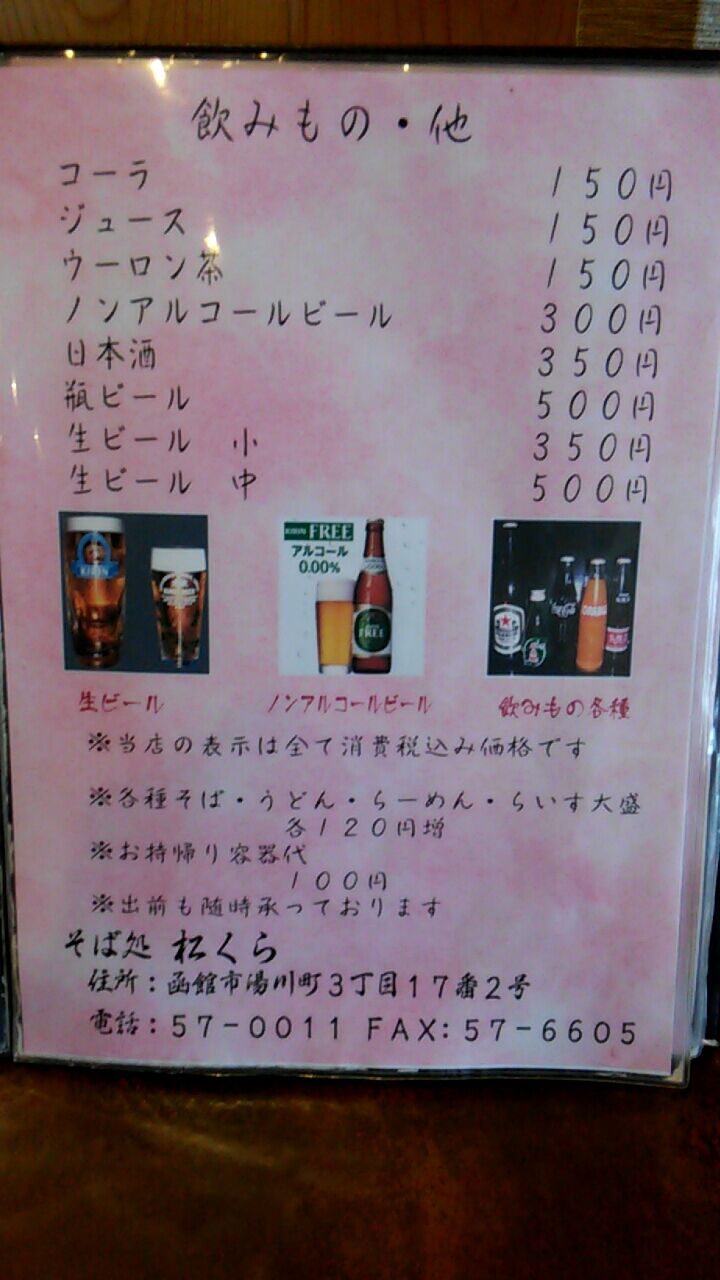 飲みもの・他
コーラ 150円
ジュース 150円
ウーロン茶 150円
ノンアルコールビール 300円
日本酒 350円
瓶ビール 500円
生ビール 小 350円
生ビール 中 500円
KIRIN
KIRIN FREE
アルコール
0.00%
FREE
生ビール
ノンアルコールビール
飲みもの各種
※当店の表示は全て消費税込み価格です
※各種そば・うどん・らーめん・らいす大盛
各120円増
※お持帰り容器代
100円
※出前も随時承っております
そば処 松くら
住所:函館市湯川町3丁目17番2号
電話:57-0011 FAX:57-6605